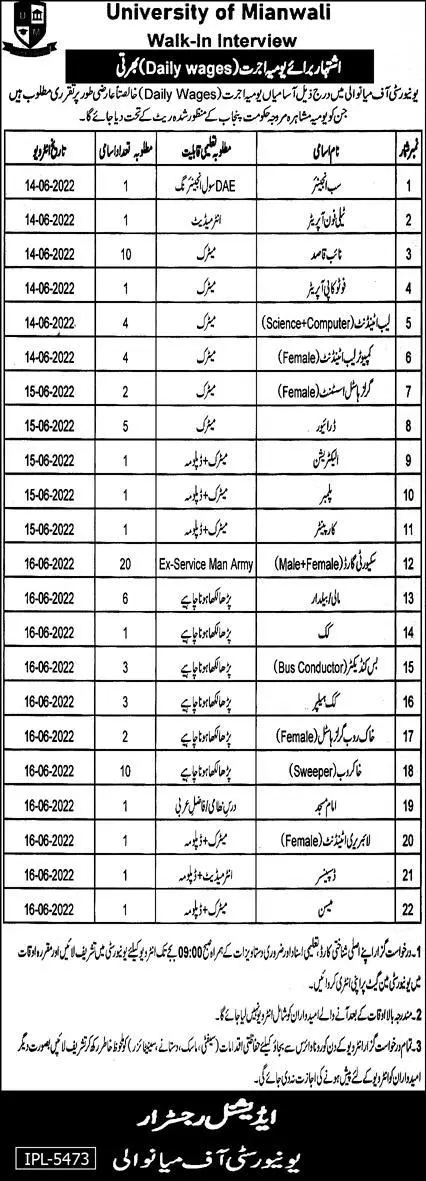 University of Mianwali
Walk-In Interview
UM
اشتہار برائے یومیہ اجرت (Daily wages) بھرتی
یونیورسٹی آف میانوالی میں درج ذیل آسامیاں یومیہ اجرت (Daily Wages) خالصتاً عارضی طور پر تقرری مطلوب ہیں
جن کو یومیہ مشاہرہ مروجہ حکومت پنجاب کے منظور شدہ ریٹ کے تحت دیا جائے گا۔
نمبر شمار نام اسامی مطلوبہ تعلیمی قابلیت مطلوبہ تعداد اسامی تاریخ انٹرویو
1 سب انجینئر DAE سول انجینئرنگ 1 14-06-2022
2 ٹیلی فون آپریٹر انٹرمیڈیٹ 1 14-06-2022
3 نائب قاصد میٹرک 10 14-06-2022
4 فوٹو کاپی آپریٹر میٹرک 1 14-06-2022
5 لیب اٹینڈنٹ (Science+Computer) میٹرک 4 14-06-2022
6 کمپیوٹر لیب اٹینڈنٹ (Female) میٹرک 4 14-06-2022
7 گرلز ہاسٹل اسسٹنٹ (Female) میٹرک 2 15-06-2022
8 ڈرائیور میٹرک 5 15-06-2022
9 الیکٹریشن میٹرک + ڈپلومہ 1 15-06-2022
10 پلمبر میٹرک + ڈپلومہ 1 15-06-2022
11 کارپینٹر میٹرک + ڈپلومہ 1 15-06-2022
12 سکیورٹی گارڈ (Male+Female) Ex-Service Man Army 20 16-06-2022
13 مالی / بیلدار پڑھا لکھا ہونا چاہیے 6 16-06-2022
14 کک پڑھا لکھا ہونا چاہیے 1 16-06-2022
15 بس کنڈیکٹر (Bus Conductor) پڑھا لکھا ہونا چاہیے 3 16-06-2022
16 کک ہیلپر پڑھا لکھا ہونا چاہیے 3 16-06-2022
17 خاک روب گرلز ہاسٹل (Female) پڑھا لکھا ہونا چاہیے 2 16-06-2022
18 خاکروب (Sweeper) پڑھا لکھا ہونا چاہیے 10 16-06-2022
19 امام مسجد درس نظامی / فاضل عربی 1 16-06-2022
20 لائبریری اٹینڈنٹ (Female) میٹرک + ڈپلومہ 1 16-06-2022
21 ڈسپنسر انٹرمیڈیٹ + ڈپلومہ 1 16-06-2022
22 میسن میٹرک + ڈپلومہ 1 16-06-2022
1۔ درخواست گزار اپنے اصلی شناختی کارڈ، تعلیمی اسناد اور ضروری دستاویزات کے ہمراہ صبح 09:00 بجے تک انٹرویو کیلئے یونیورسٹی میں تشریف لائیں اور مقررہ اوقات
میں یونیورسٹی مین گیٹ پر اپنی انٹری کروائیں۔
2۔ مندرجہ بالا اوقات کے بعد آنے والے امیدواران کو شامل انٹرویو نہیں کیا جائے گا۔
3۔ تمام درخواست گزار انٹرویو کے دن کورونا وائرس سے بچاؤ کیلئے حفاظتی اقدامات (سیفٹی، ماسک، دستانے، سینیٹائزر) کو ملحوظ خاطر رکھ کر تشریف لائیں بصورت دیگر
امیدواران کو انٹرویو کے لئے پیش ہونے کی اجازت نہ دی جائے گی۔
ایڈیشنل رجسٹرار
یونیورسٹی آف میانوالی
IPL-5473